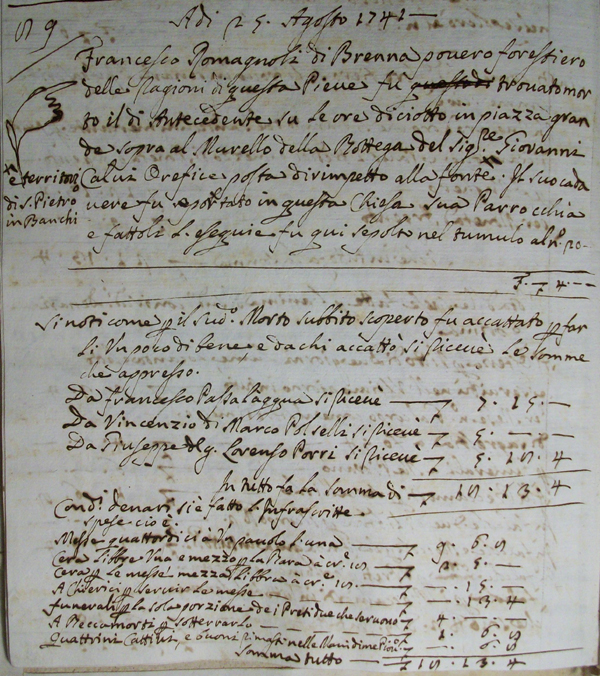 Adi 25. Agosto 1741
59
Francesco Romagnoli di Brenna povero forestiero
delle Stagioni di questa Pieve fù trovato mor-
to il di Antecedente su le ore diciotto in piazza gran
de sopra al Murello della Bottega del Sig.re Giovanni
Calvi Orefice posta dirimpetto alla fonte. Il suo cada
vere fu portato in questa Chiesa sua Parrocchia
e fattoli l'eseguie fu qui sepolto nel tumulo al N.
e territorio
di S. Pietro
in Banchi
4. —
Si noti come p il sud.o Morto subbito scoperto fu accattato p far
li Un poco di bene, e da chi accattò si ricevè le somme
che appresso.
Da Francesco Passalaqqua si ricevè — 5. 15. —
Da Vincenzio di Marco Polselli si ricevè — 5. — —
Da Giuseppe Lorenso Porri si ricevè — 5. 15. 4
In tutto fa la somma di — 15. 13. 4
Con di denari si è fatto l'Infrascritte
spese cioè.
Messe quattordici a Un pavolo l'una — 9. 6. 8
Cera libbre Una e mezzo p la Bara à
Cera p le messe mezza libbra à — 15. —
A Chierici p servir le messe — 13. 4
Funerali p la sola porzione dei Preti due che servono
A Beccamorti p sotterrarlo — 1. 6. 8
Quattrini Cattivi, e buoni rimasti nelle Mani
Somma tutto — 15. 13. 4